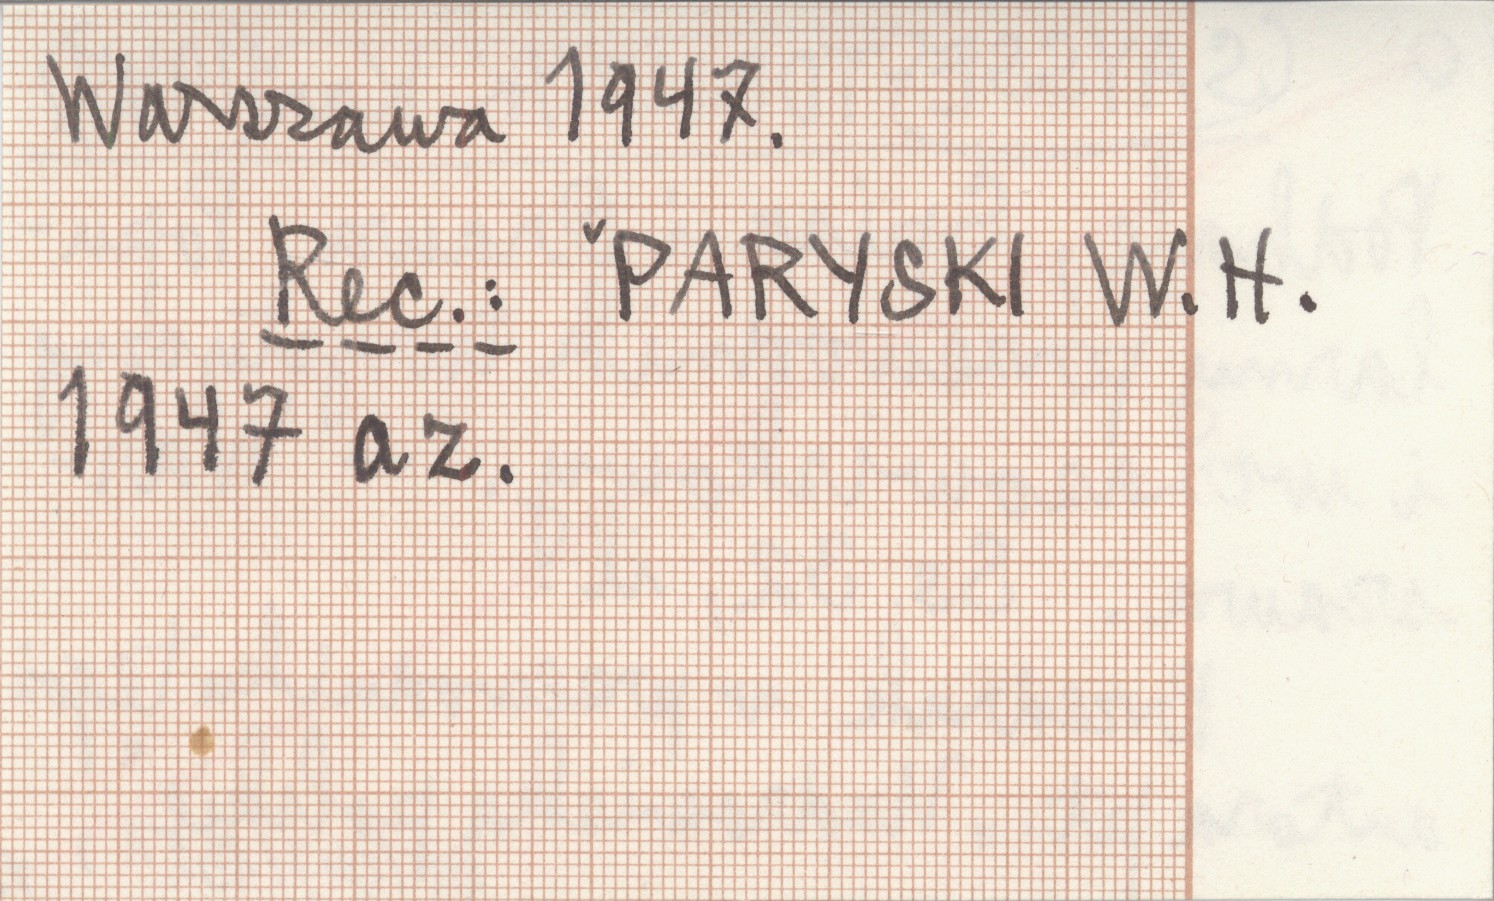 Warszawa 1947.
Rec.: ˇPARYSKI W.H.
1947 az.